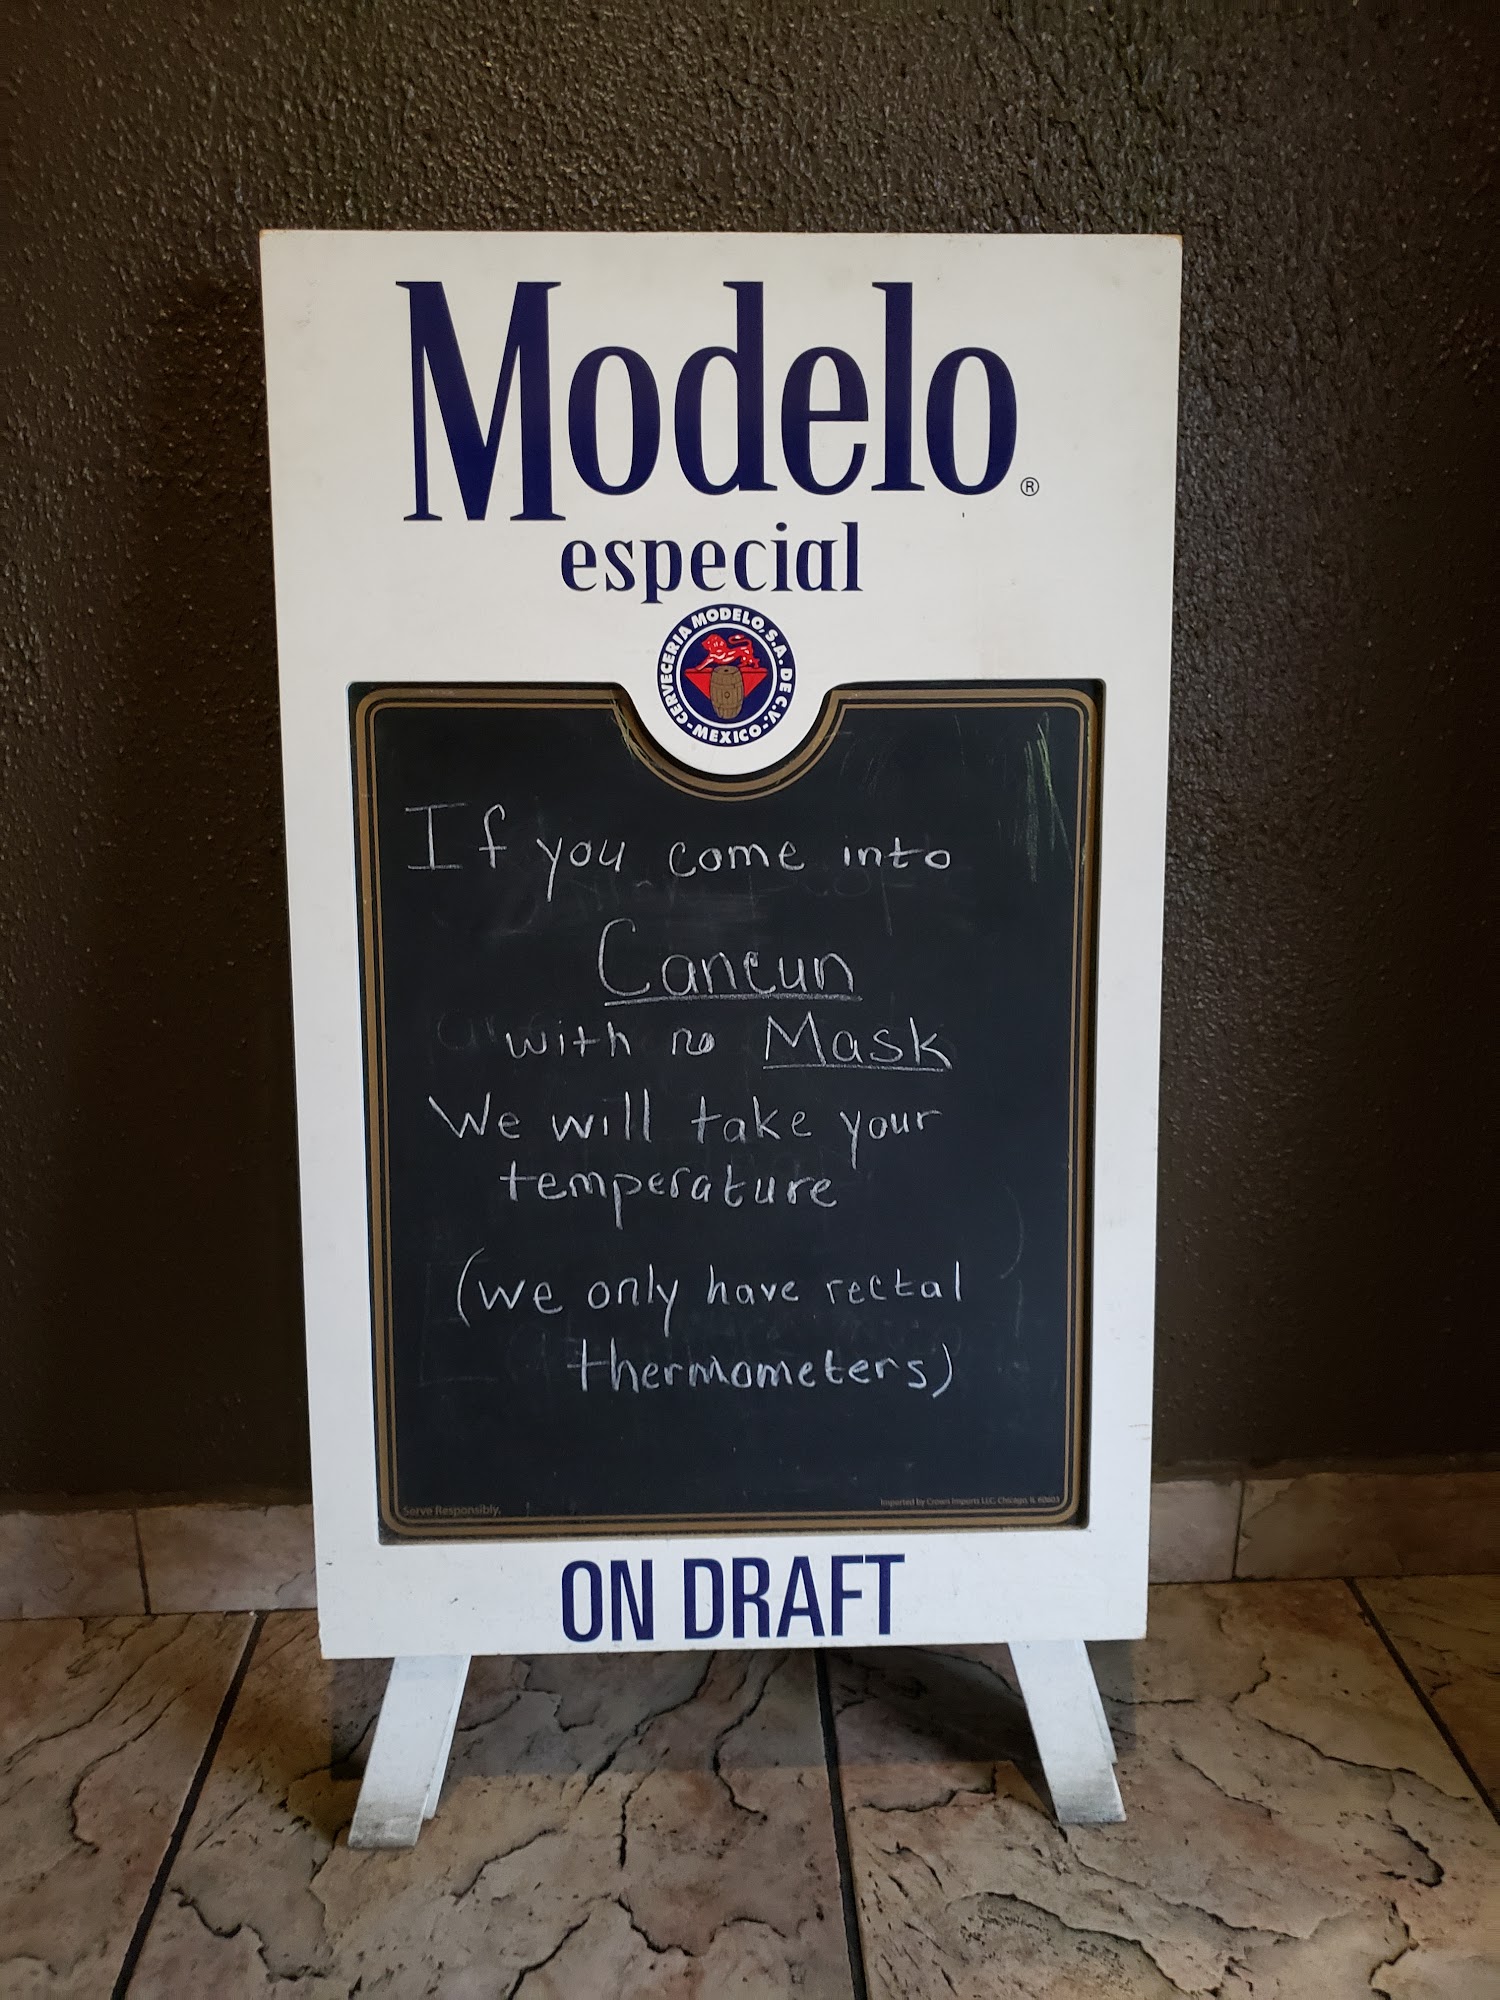 Modelo®
especial
CERVECERIA MODELO, S.A. DE C.V.
-MEXICO-
If you come into
Cancun
with no Mask
We will take your
temperature
(we only have rectal
thermometers)
Serve Responsibly.
Imported by Crown Imports LLC, Chicago, IL 60603
ON DRAFT